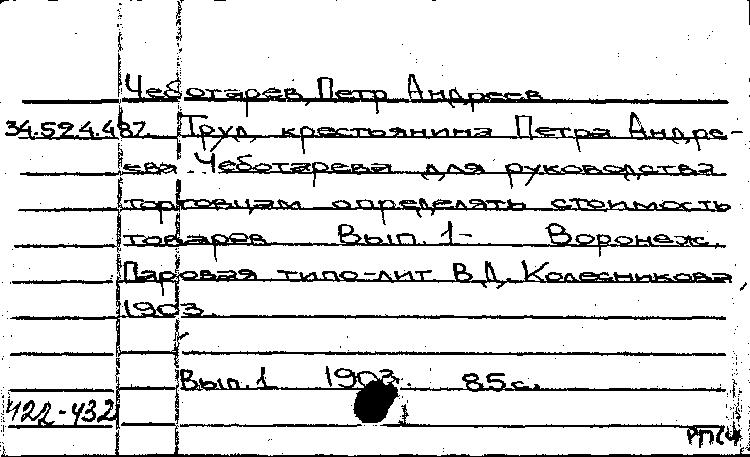 Чеботарев, Петр Андреев
34.524.487. Труд крестьянина Петра Андре-
ева Чеботарева для руководства
торговцам определять стоимость
товаров Вып. 1- Воронеж,
Паровая типо-лит В.Д. Колесникова,
1903.
Вып. 1 1903. 85 с.
422-432